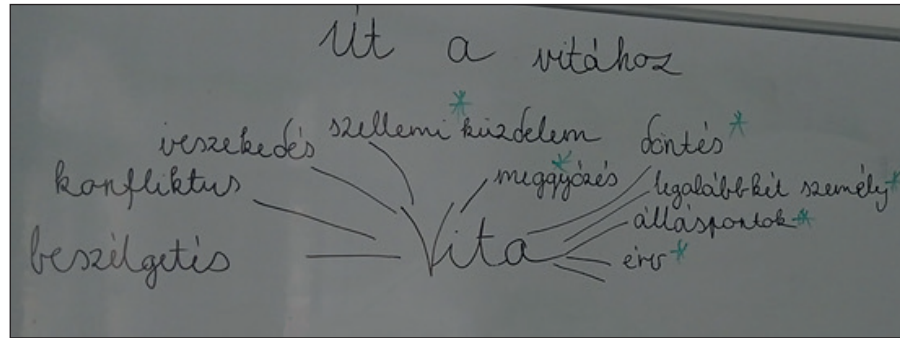 Út a vitához
veszekedés szellemi küzdelem döntés
konfliktus meggyőzés legalább két személy
álláspontok
beszélgetés Vita érv